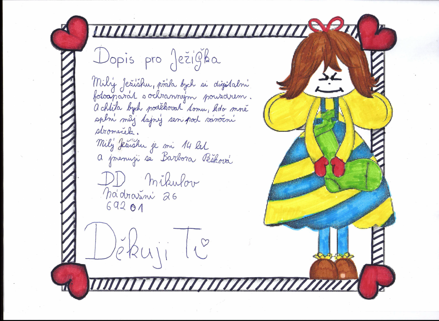 Dopis pro Ježíška
Milý Ježíšku, přála bych si digitální
fotoaparát s ochranným pouzdrem.
A chtěla bych poděkovat tomu, kdo mně
splní můj tajný sen pod vánoční
stromeček.
Milý Ježíšku je mi 14 let
a jmenuji se Barbora
DD Mikulov
Nádražní 26
692 01
Děkuji Ti